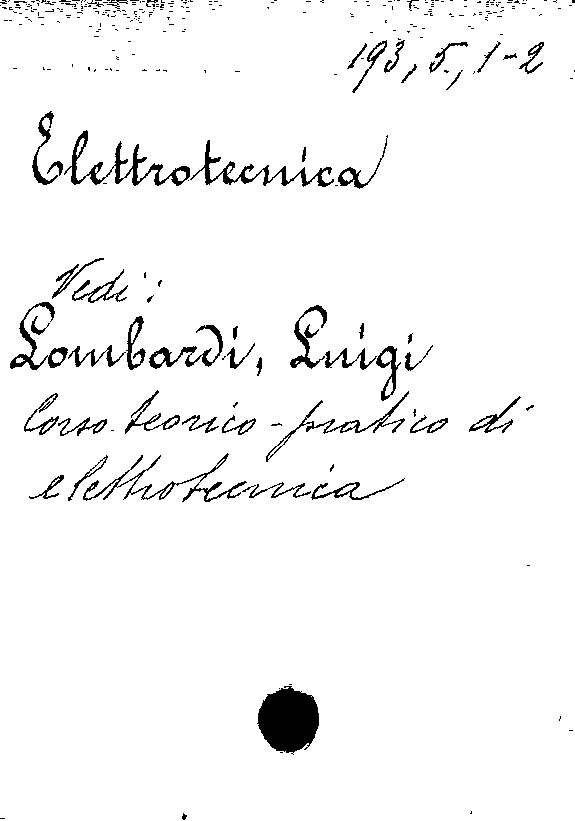 193, 5, 1-2
Elettrotecnica
Vedi:
Lombardi, Luigi
Corso teorico-pratico di
elettrotecnica